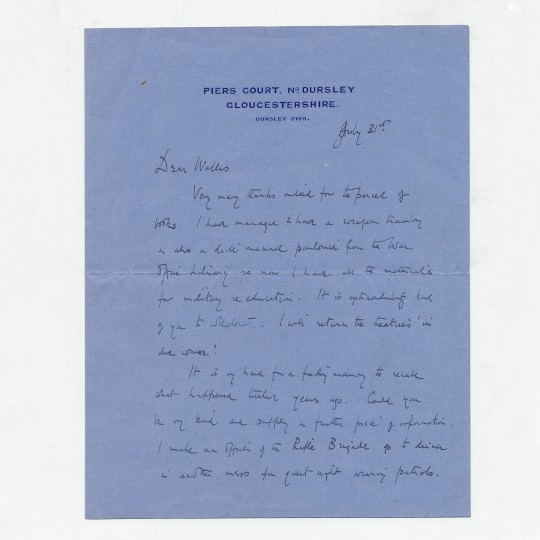 PIERS COURT. Nr DURSLEY
GLOUCESTERSHIRE.
DURSLEY 2150.
July 31st
Dear Wallis
Very many thanks indeed for the parcel of
books. I have managed to have a weapon training
also a drill manual from the War
Office library so now I have all the materials
for military re education. It is extraordinarily kind
of you to I will return the in
due course?
It is very hard for a fading memory to recall
what happened twelve years ago. Could you
be very kind and supply a further piece of information.
I make an officer of the Rifle Brigade go to dinner
in another mess for guest night wearing patrols.